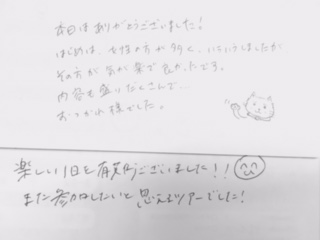 本日はありがとうございました!
はじめは、女性の方が多く、いろいろしましたが
その方が気が楽で良かったです。
内容も盛りだくさんで…
おつかれ様でした。
楽しい1日を有難うございました!!
また参加したいと思えるツアーでした!